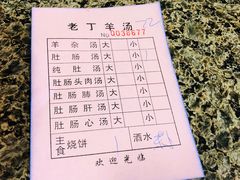 老丁羊汤
No 0036677
羊杂汤 大 小
肚肠汤 大 小
纯肚汤 大 小
肚肠头肉汤 大 小
肚肠肺汤 大 小
肚肠肝汤 大 小
肚肠心汤 大 小
主食 烧饼 酒水
欢迎光临